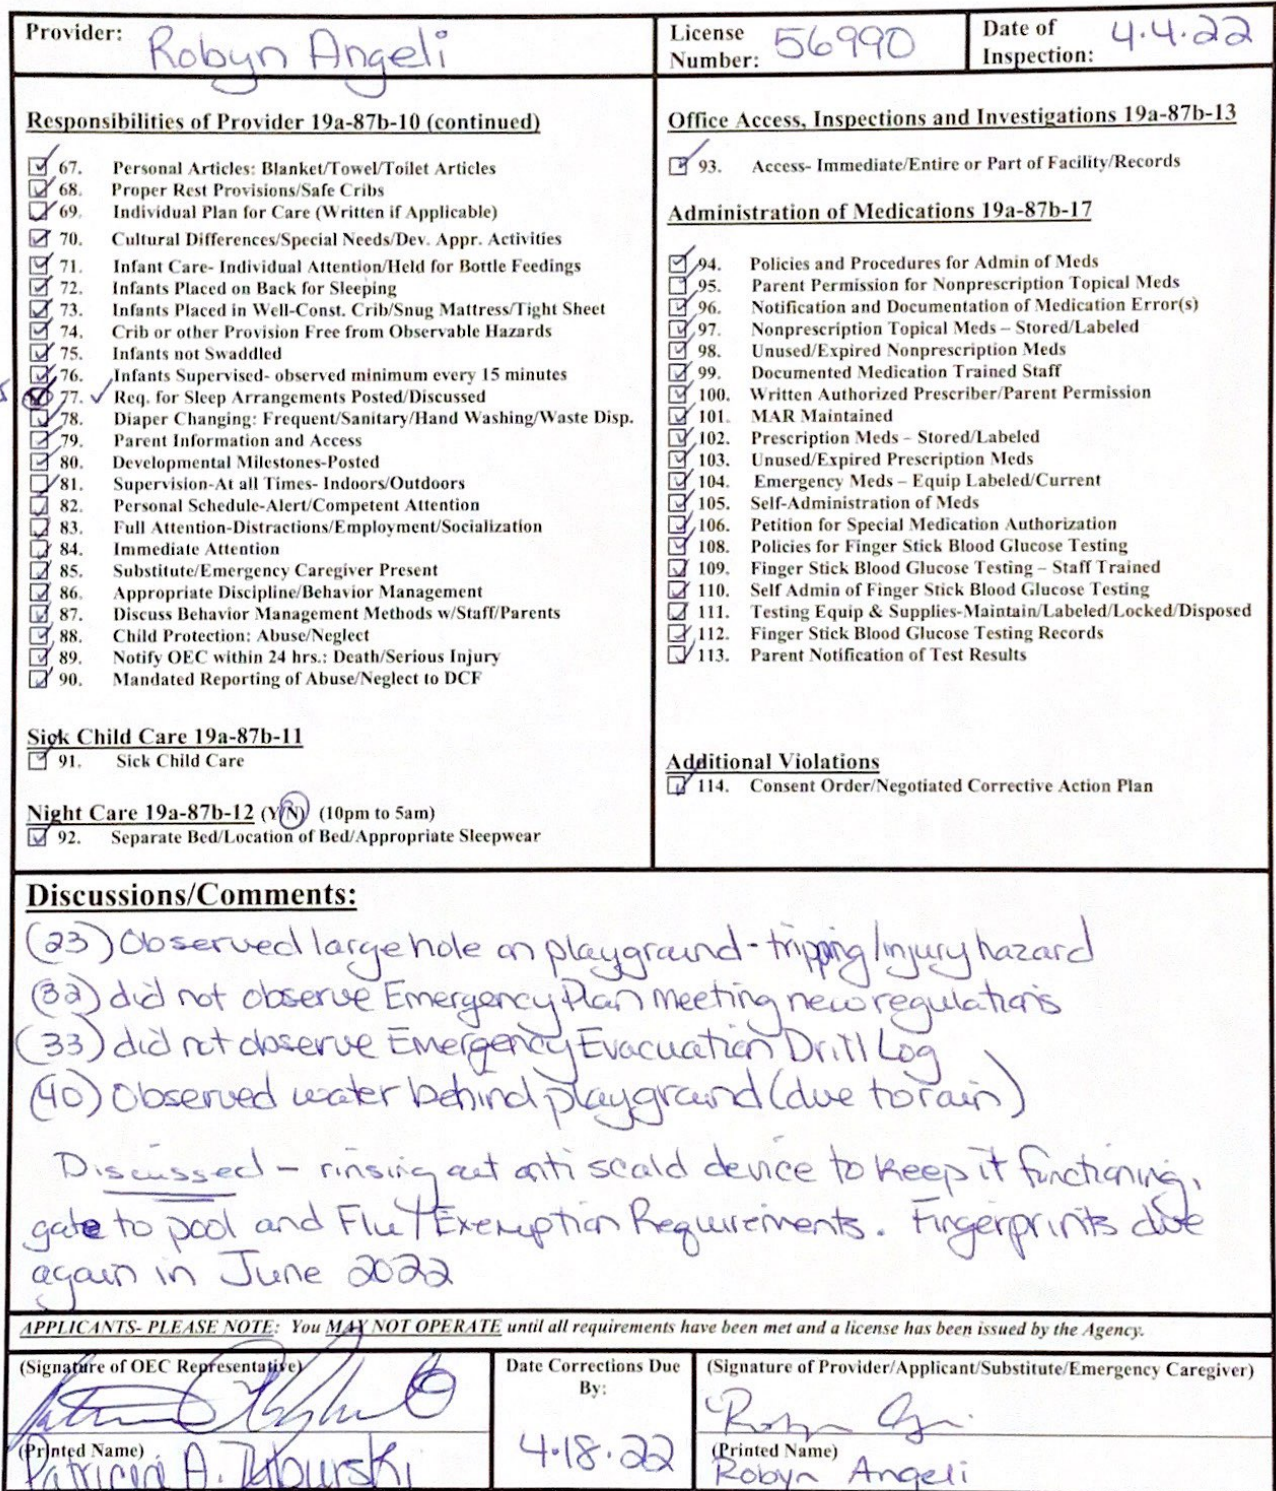 Provider: Robyn Angeli
License Number: 56990
Date of Inspection: 4.4.22
Responsibilities of Provider 19a-87b-10 (continued)
67. Personal Articles: Blanket/Towel/Toilet Articles
68. Proper Rest Provisions/Safe Cribs
69. Individual Plan for Care (Written if Applicable)
70. Cultural Differences/Special Needs/Dev. Appr. Activities
71. Infant Care- Individual Attention/Held for Bottle Feedings
72. Infants Placed on Back for Sleeping
73. Infants Placed in Well-Const. Crib/Snug Mattress/Tight Sheet
74. Crib or other Provision Free from Observable Hazards
75. Infants not Swaddled
76. Infants Supervised- observed minimum every 15 minutes
77. Req. for Sleep Arrangements Posted/Discussed
78. Diaper Changing: Frequent/Sanitary/Hand Washing/Waste Disp.
79. Parent Information and Access
80. Developmental Milestones-Posted
81. Supervision-At all Times- Indoors/Outdoors
82. Personal Schedule-Alert/Competent Attention
83. Full Attention-Distractions/Employment/Socialization
84. Immediate Attention
85. Substitute/Emergency Caregiver Present
86. Appropriate Discipline/Behavior Management
87. Discuss Behavior Management Methods w/Staff/Parents
88. Child Protection: Abuse/Neglect
89. Notify OEC within 24 hrs.: Death/Serious Injury
90. Mandated Reporting of Abuse/Neglect to DCF
Sick Child Care 19a-87b-11
91. Sick Child Care
Night Care 19a-87b-12 (Y/N) (10pm to 5am)
92. Separate Bed/Location of Bed/Appropriate Sleepwear
Office Access, Inspections and Investigations 19a-87b-13
93. Access- Immediate/Entire or Part of Facility/Records
Administration of Medications 19a-87b-17
94. Policies and Procedures for Admin of Meds
95. Parent Permission for Nonprescription Topical Meds
96. Notification and Documentation of Medication Error(s)
97. Nonprescription Topical Meds – Stored/Labeled
98. Unused/Expired Nonprescription Meds
99. Documented Medication Trained Staff
100. Written Authorized Prescriber/Parent Permission
101. MAR Maintained
102. Prescription Meds – Stored/Labeled
103. Unused/Expired Prescription Meds
104. Emergency Meds – Equip Labeled/Current
105. Self-Administration of Meds
106. Petition for Special Medication Authorization
108. Policies for Finger Stick Blood Glucose Testing
109. Finger Stick Blood Glucose Testing – Staff Trained
110. Self Admin of Finger Stick Blood Glucose Testing
111. Testing Equip & Supplies-Maintain/Labeled/Locked/Disposed
112. Finger Stick Blood Glucose Testing Records
113. Parent Notification of Test Results
Additional Violations
114. Consent Order/Negotiated Corrective Action Plan
Discussions/Comments:
(23) Observed large hole on playground - tripping/injury hazard
(32) did not observe Emergency Plan meeting new regulations
(33) did not observe Emergency Evacuation Drill Log
(40) Observed water behind playground (due to rain)
Discussed - rinsing out anti scald device to keep it functioning,
gate to pool and Flu/Exemption Requirements. Fingerprints due
again in June 2022
APPLICANTS- PLEASE NOTE: You MAY NOT OPERATE until all requirements have been met and a license has been issued by the Agency.
(Signature of OEC Representative)
(Printed Name)
Patricia A.
Date Corrections Due
By:
4.18.22
(Signature of Provider/Applicant/Substitute/Emergency Caregiver)
(Printed Name)
Robyn Angeli